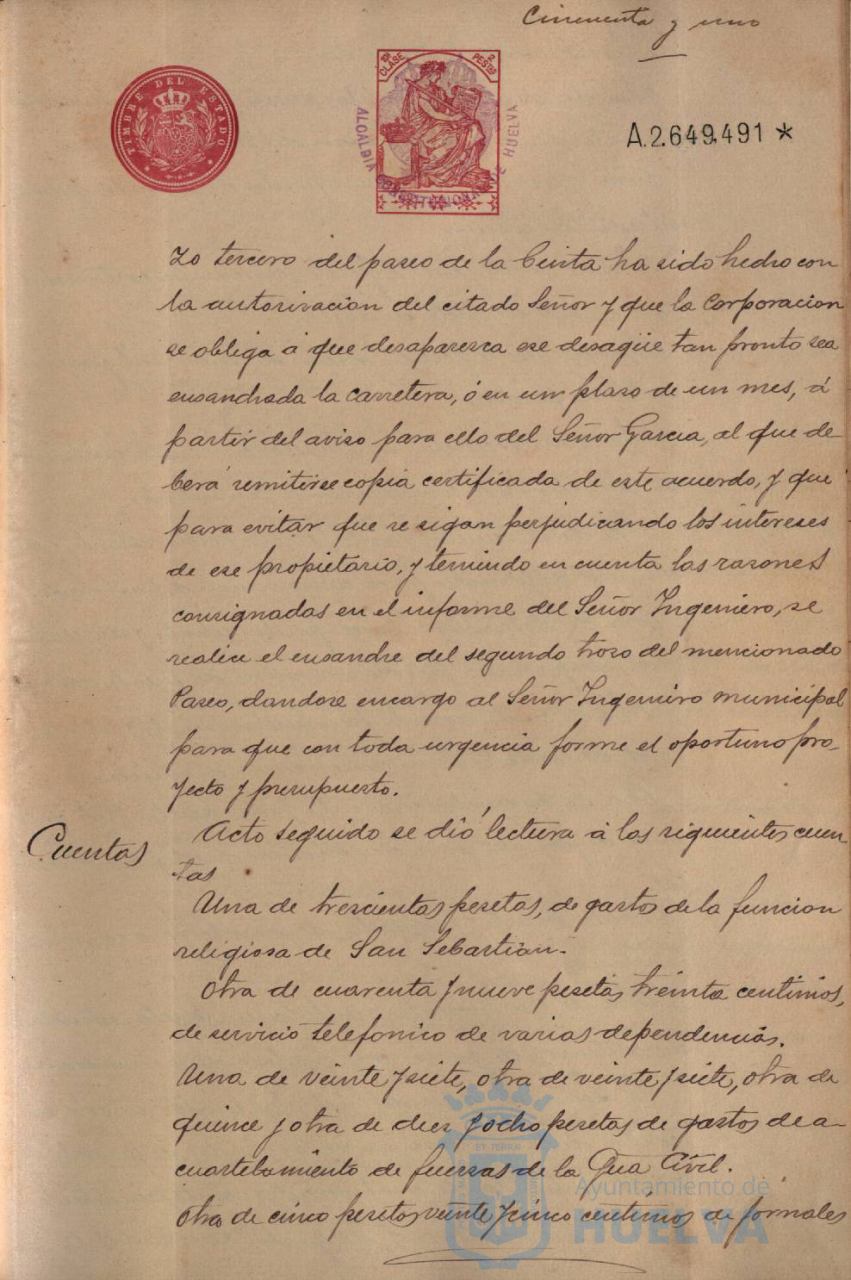 Cincuenta y uno
TIMBRE DEL ESTADO
10ª CLASE
2 PESETAS
ALCALDIA CONSTITUCIONAL DE HUELVA
A.2.649.491 *
zo tercero del paseo de la Cinta ha sido hecho con
la autorisacion del citado Señor y que la Corporacion
se obliga á que desaparesca ese desagüe tan pronto sea
ensanchada la carretera, ó en un plaso de un mes, á
partir del aviso para ello del Señor Garcia, al que de-
berá remitirse copia certificada de este acuerdo, y que
para evitar que se sigan perjudicando los intereses
de ese propietario, y teniendo en cuenta las rasones
consignadas en el informe del Señor Ingeniero, se
realice el ensanche del segundo troso del mencionado
Paseo, dandose encargo al Señor Ingeniero municipal
para que con toda urgencia forme el oportuno pro-
yecto y presupuesto.
Cuentas
Acto seguido se dió lectura á las siguientes cuen-
tas
Una de trescientas pesetas, de gastos de la funcion
religiosa de San Sebastian.
Otra de cuarenta y nueve pesetas treinta centimos,
de servicio telefonico de varias dependencias.
Una de veinte y siete, otra de veinte y siete, otra de
quince y otra de diez y ocho pesetas de gastos de a-
cuartelamiento de fuersas de la Gua Civil.
Otra de cinco pesetas veinte y cinco centimos de jornales
Ayuntamiento de
HUELVA